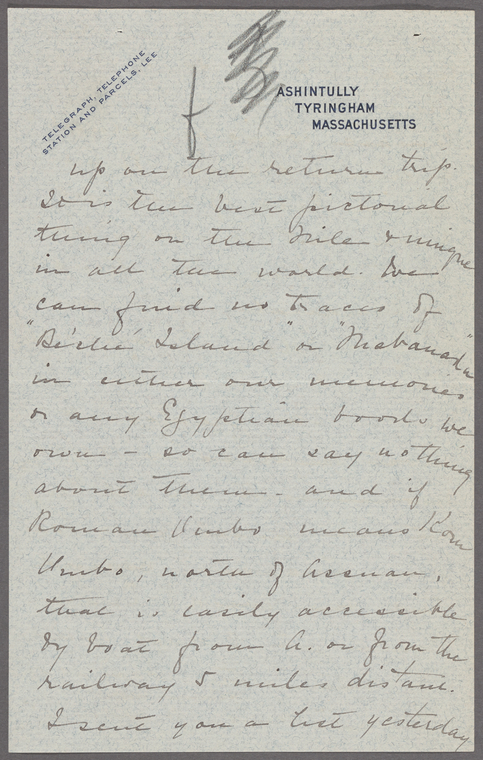 TELEGRAPH, TELEPHONE
STATION AND PARCELS, LEE
ASHINTULLY
TYRINGHAM
MASSACHUSETTS
up on the return trip.
It is the best pictorial
thing on the Nile & unique
in all the world. We
can find no traces of
Island" or
in either our memories
or any Egyptian books we
own - so can say nothing
about them - and if
Roman Umbo means Kom
Umbo, north of Assuan,
that is easily accessible
by boat from A. or from the
railway 5 miles distant.
I sent you a list yesterday